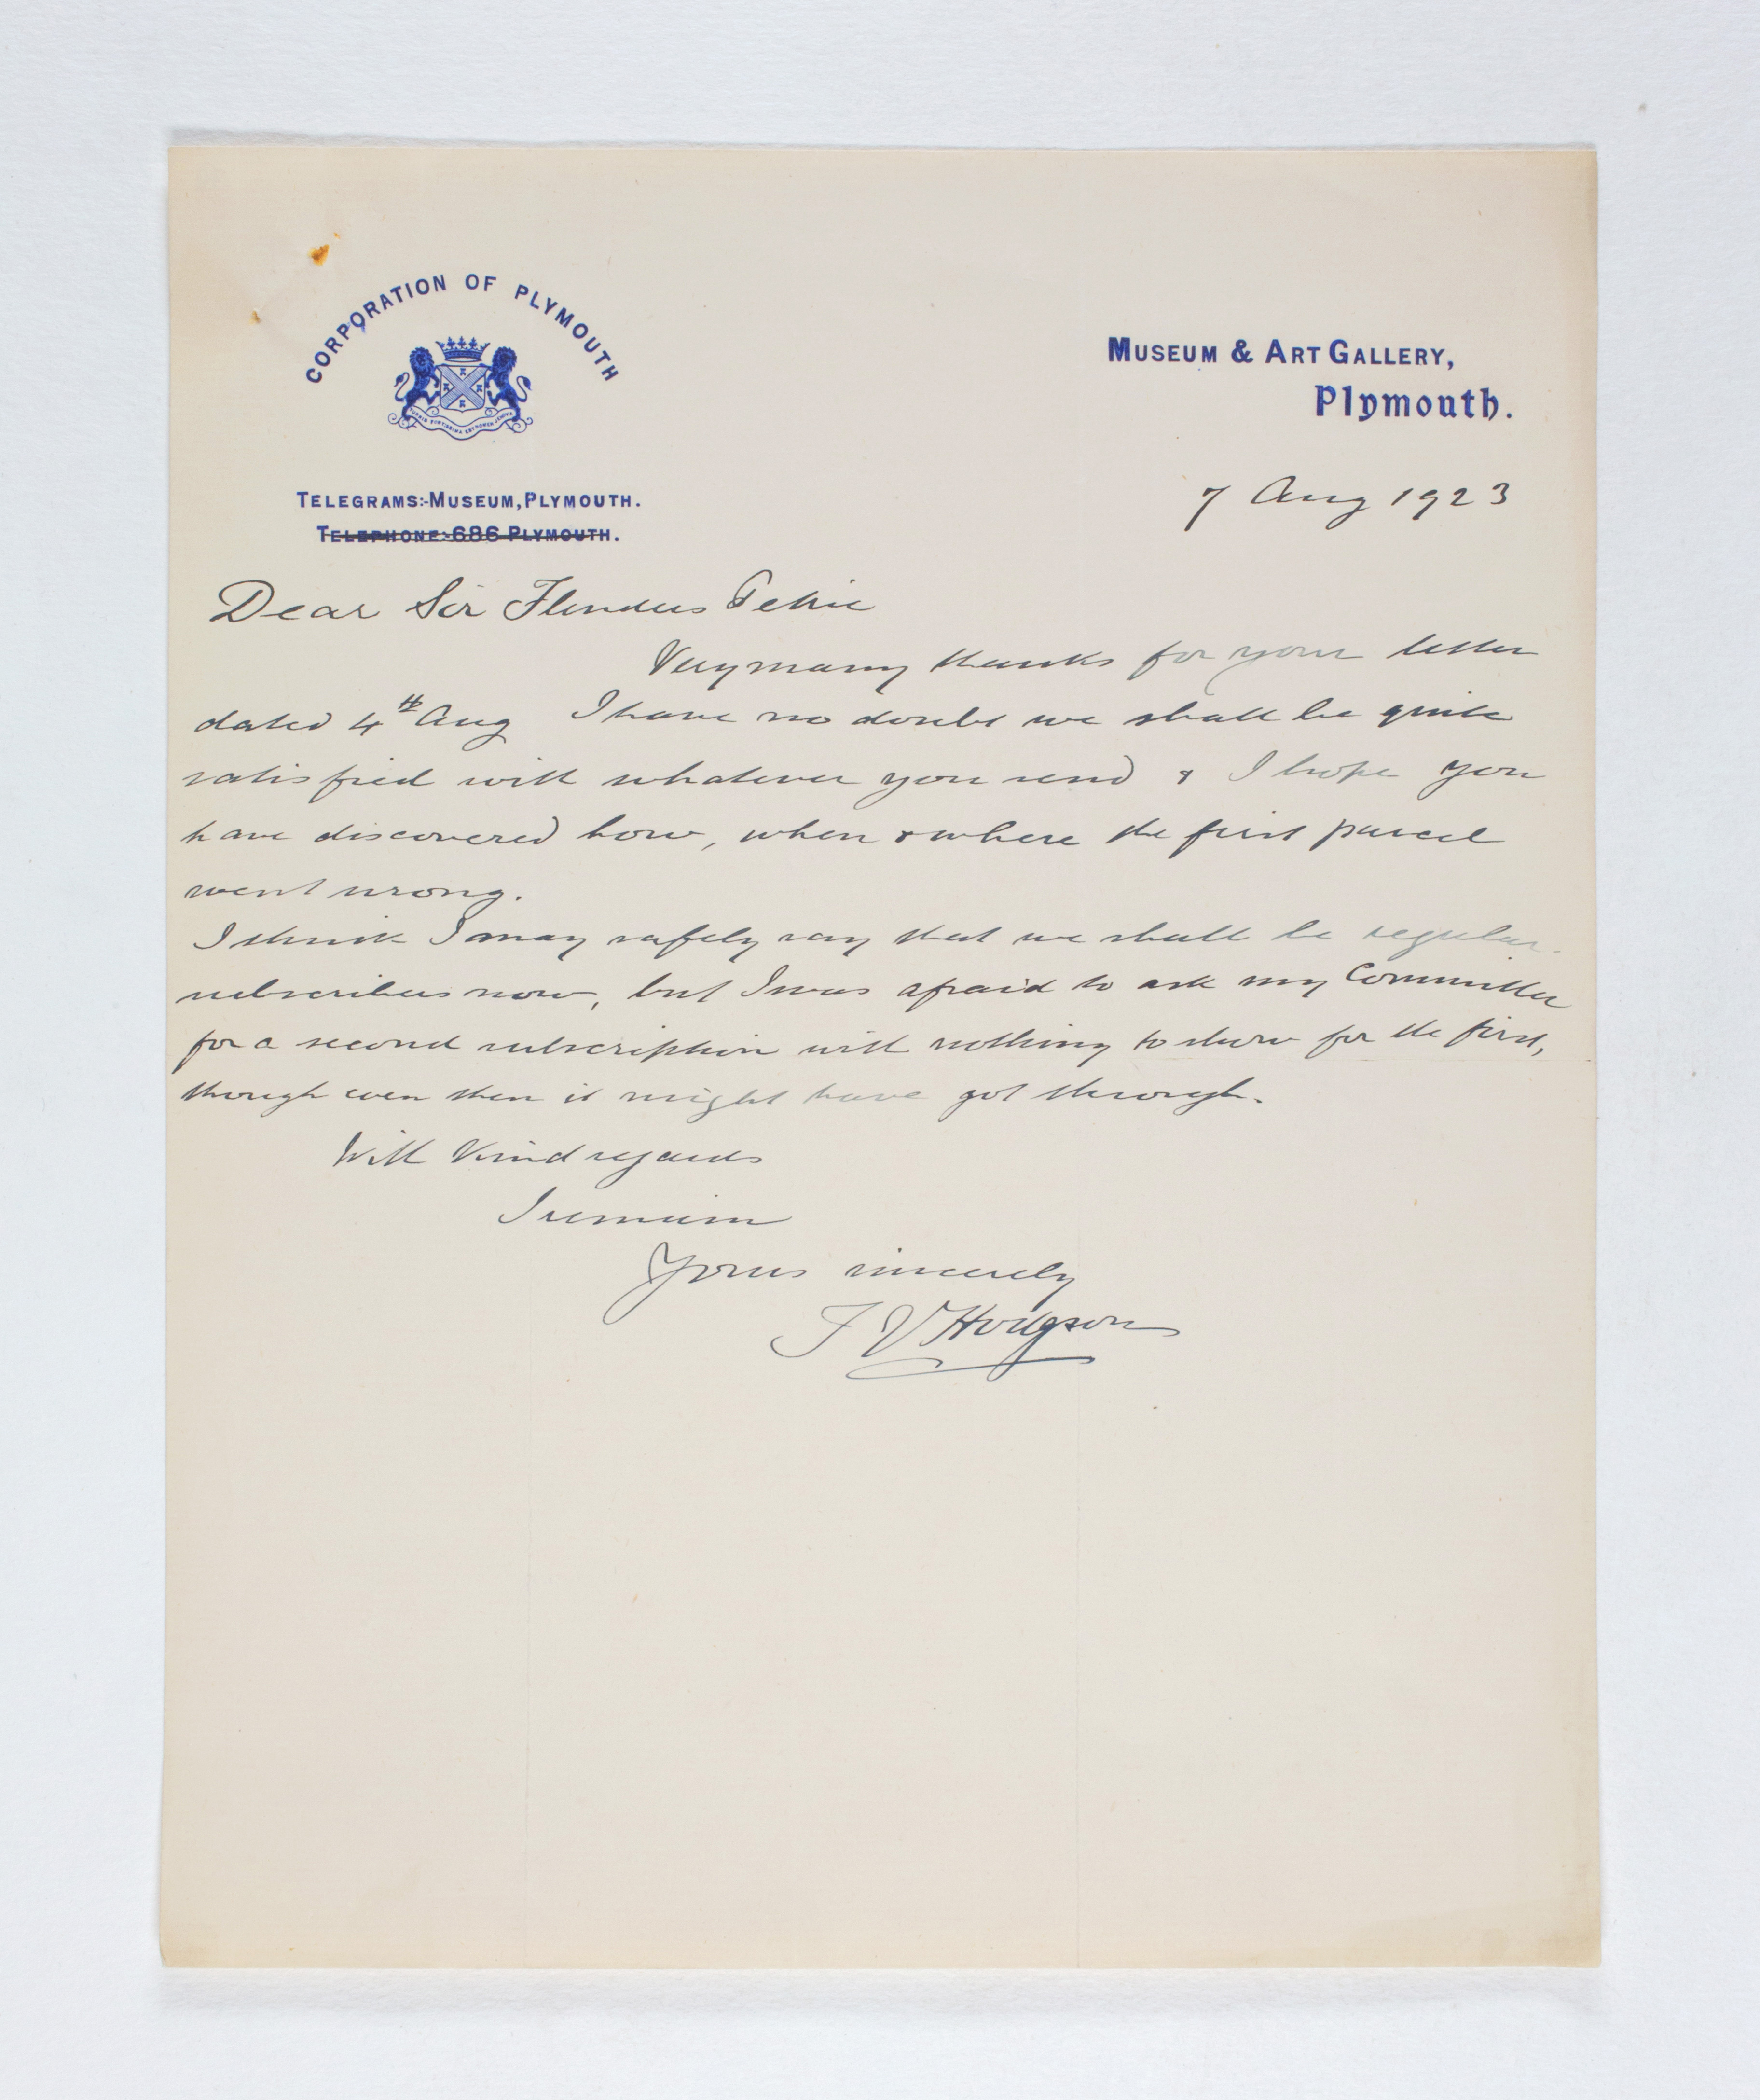 CORPORATION OF PLYMOUTH
MUSEUM & ART GALLERY,
Plymouth.
TELEGRAMS:-MUSEUM, PLYMOUTH.
TELEPHONE:-686 PLYMOUTH.
7 Aug 1923
Dear Sir Flinders Petrie
Very many thanks for your letter
dated 4th Aug I have no doubt we shall be quite
satisfied with whatever you send & I hope you
have discovered how, when & where the first parcel
went wrong.
I think I may safely say that we shall be regular
subscribers now, but I was afraid to ask my Committee
for a second subscription with nothing to show for the first,
though even then it might have got through.
With Kind regards
I remain
Yours sincerely
T V Hodgson